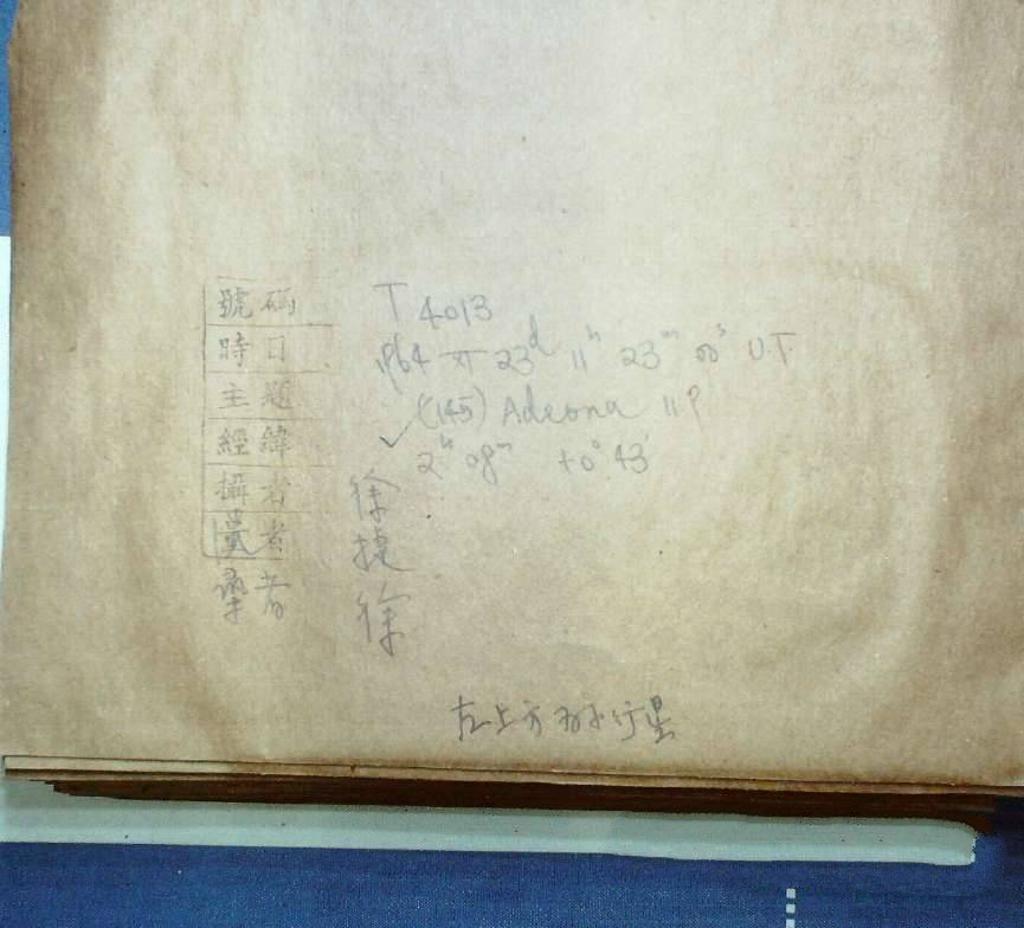 號碼 T 4013
時日 1964 XI 23d 11h 23m 00s U.T.
主題 (145) Adeona 11P
經緯 ✓ 2h 08m +0° 43'
攝者 徐
量者 捷
者 徐
左上方为小行星